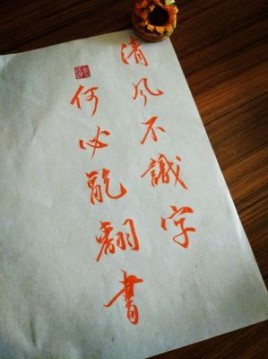 清风不識字
何必亂翻書